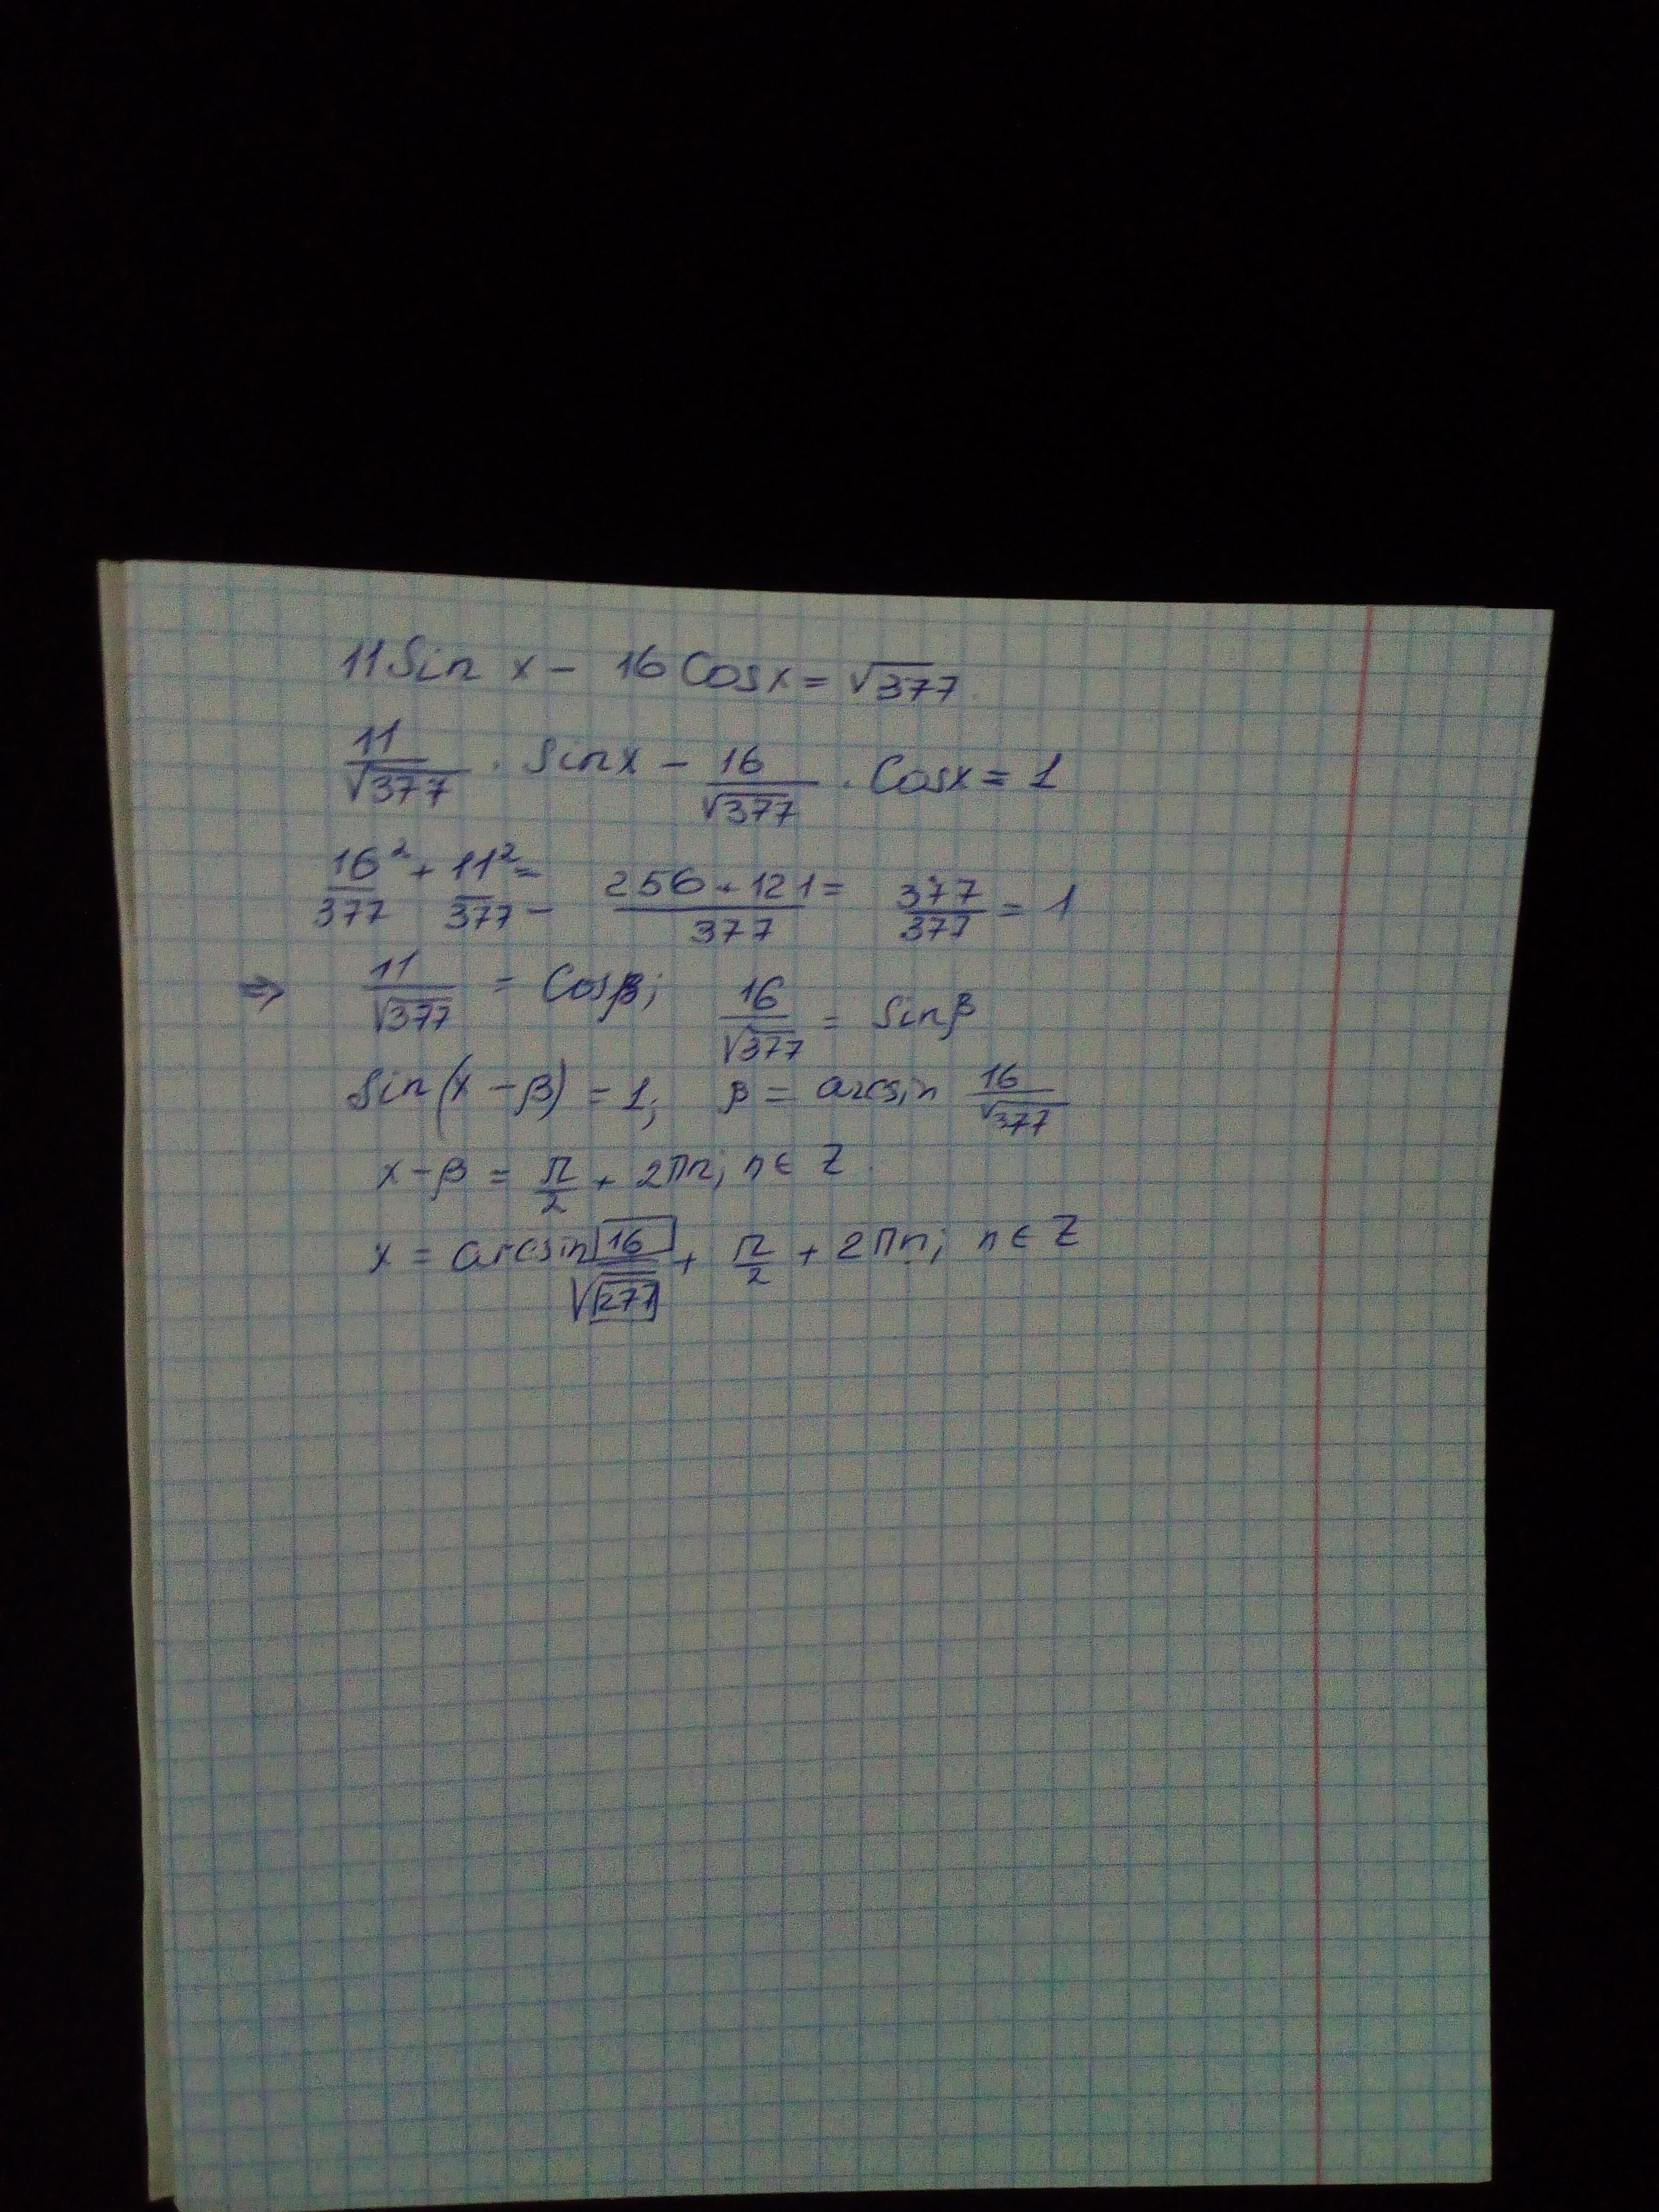 11 Sin x - 16 Cosx = √377
11/√377 · Sinx - 16/√377 · Cosx = 1
16²/377 + 11²/377 = (256 + 121)/377 = 377/377 = 1
⇒ 11/√377 = Cosβ; 16/√377 = Sinβ
Sin(x - β) = 1; β = arcsin 16/√377
x - β = π/2 + 2πn; n ∈ Z.
x = arcsin 16/√377 + π/2 + 2πn; n ∈ Z